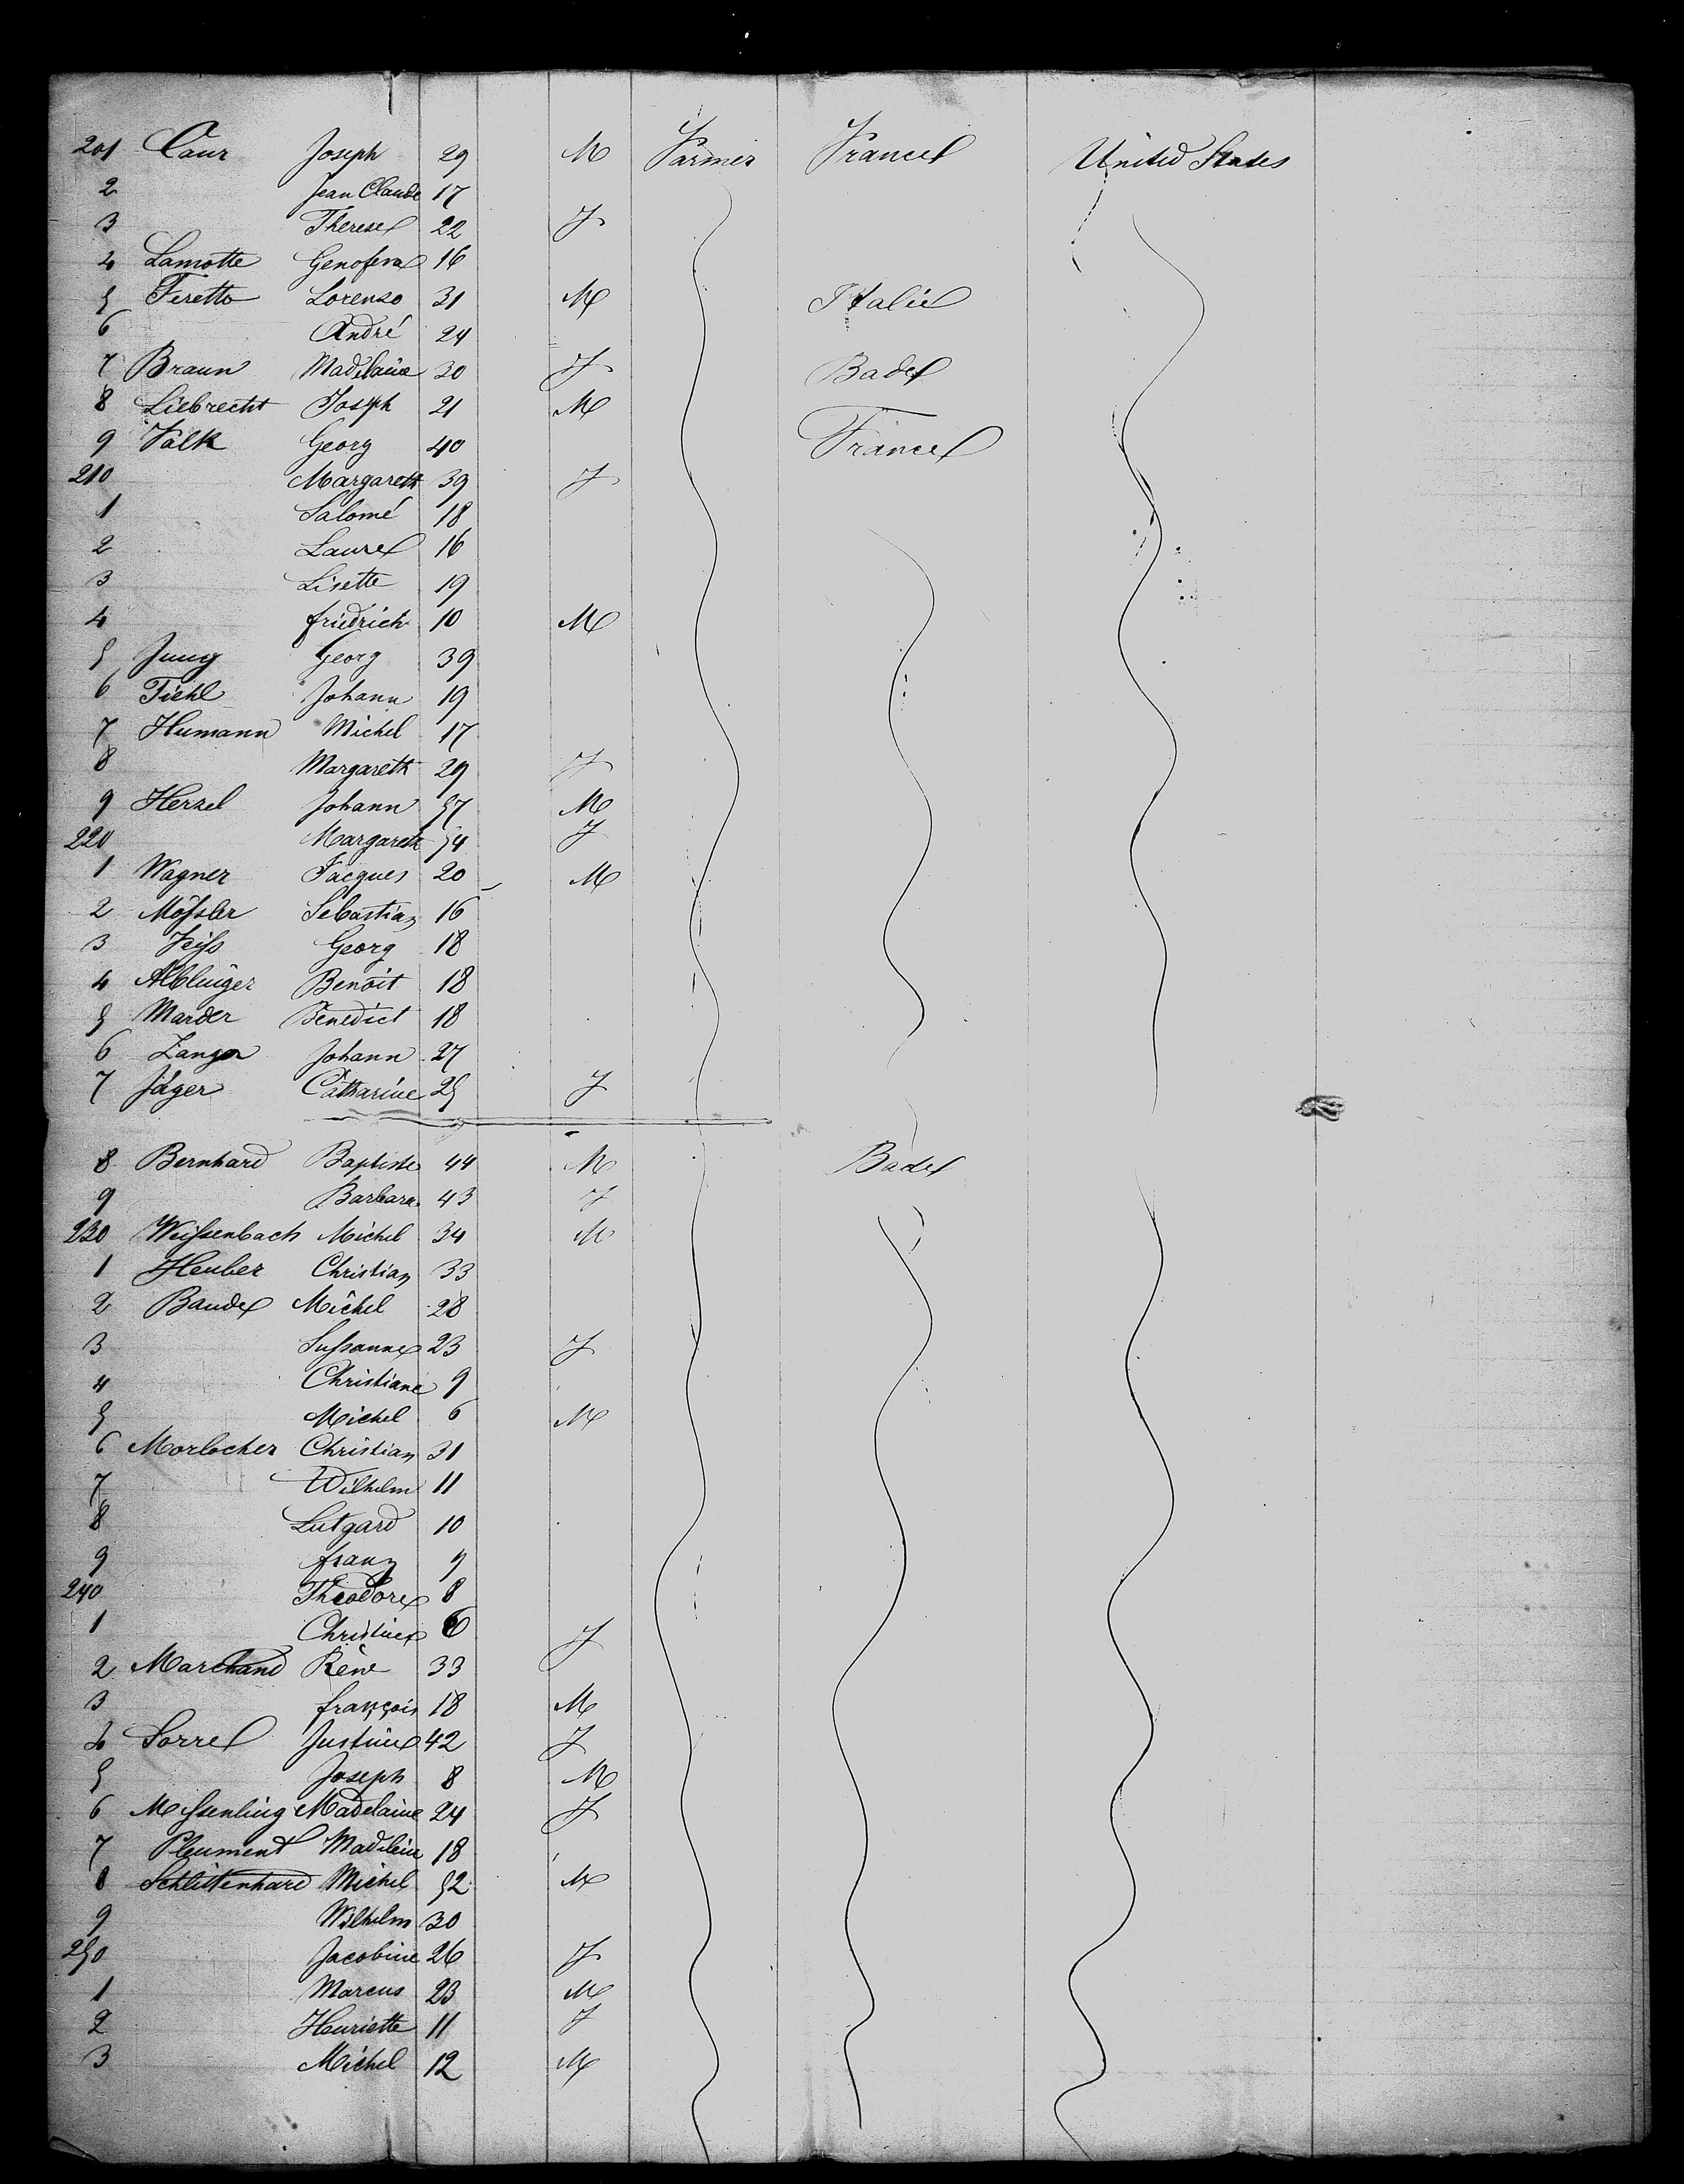 201 Caur Joseph 29 M Farmer France United States
2 Jean Claude 17
3 Therese 22 F
4 Lamotte Genofeva 16
5 Feretto Lorenzo 31 M Italie
6 André 24
7 Braun Madelaine 30 F Bade
8 Liebrecht Joseph 21 M
9 Valk Georg 40 France
210 Margareth 39 F
1 Salomé 18
2 Laure 16
3 Lisette 19
4 friedrich 10 M
5 Jung Georg 39
6 Fiehl Johann 19
7 Humann Michel 17
8 Margareth 29 F
9 Herzel Johann 57 M
220 Margareth 54 F
1 Wagner Jacques 20 M
2 Mößler Sebastian 16
3 Georg 18
4 Benoit 18
5 Marder Benedict 18
6 Zanger Johann 27
7 Jäger Catharine 25 F
8 Bernhard Baptiste 44 M Bade
9 Barbara 43 F
230 Weißenbach Michel 34 M
1 Heuber Christian 33
2 Baude Michel 28
3 Sußanne 23 F
4 Christiane 9
5 Michel 6 M
6 Morlocher Christian 31
7 Wilhelm 11
8 Lutgard 10
9 franz 9
240 Theodore 8
1 Christine 6 F
2 Marchand Rène 33
3 françois 18 M
4 Sorrel Justine 42 F
5 Joseph 8 M
6 Meßenling Madelaine 24 F
7 Pleument Madelein 18
8 Schlittenhard Michel 52 M
9 Wilhelm 30
250 Jacobine 26 F
1 Marcus 23 M
2 Henriette 11 F
3 Michel 12 M